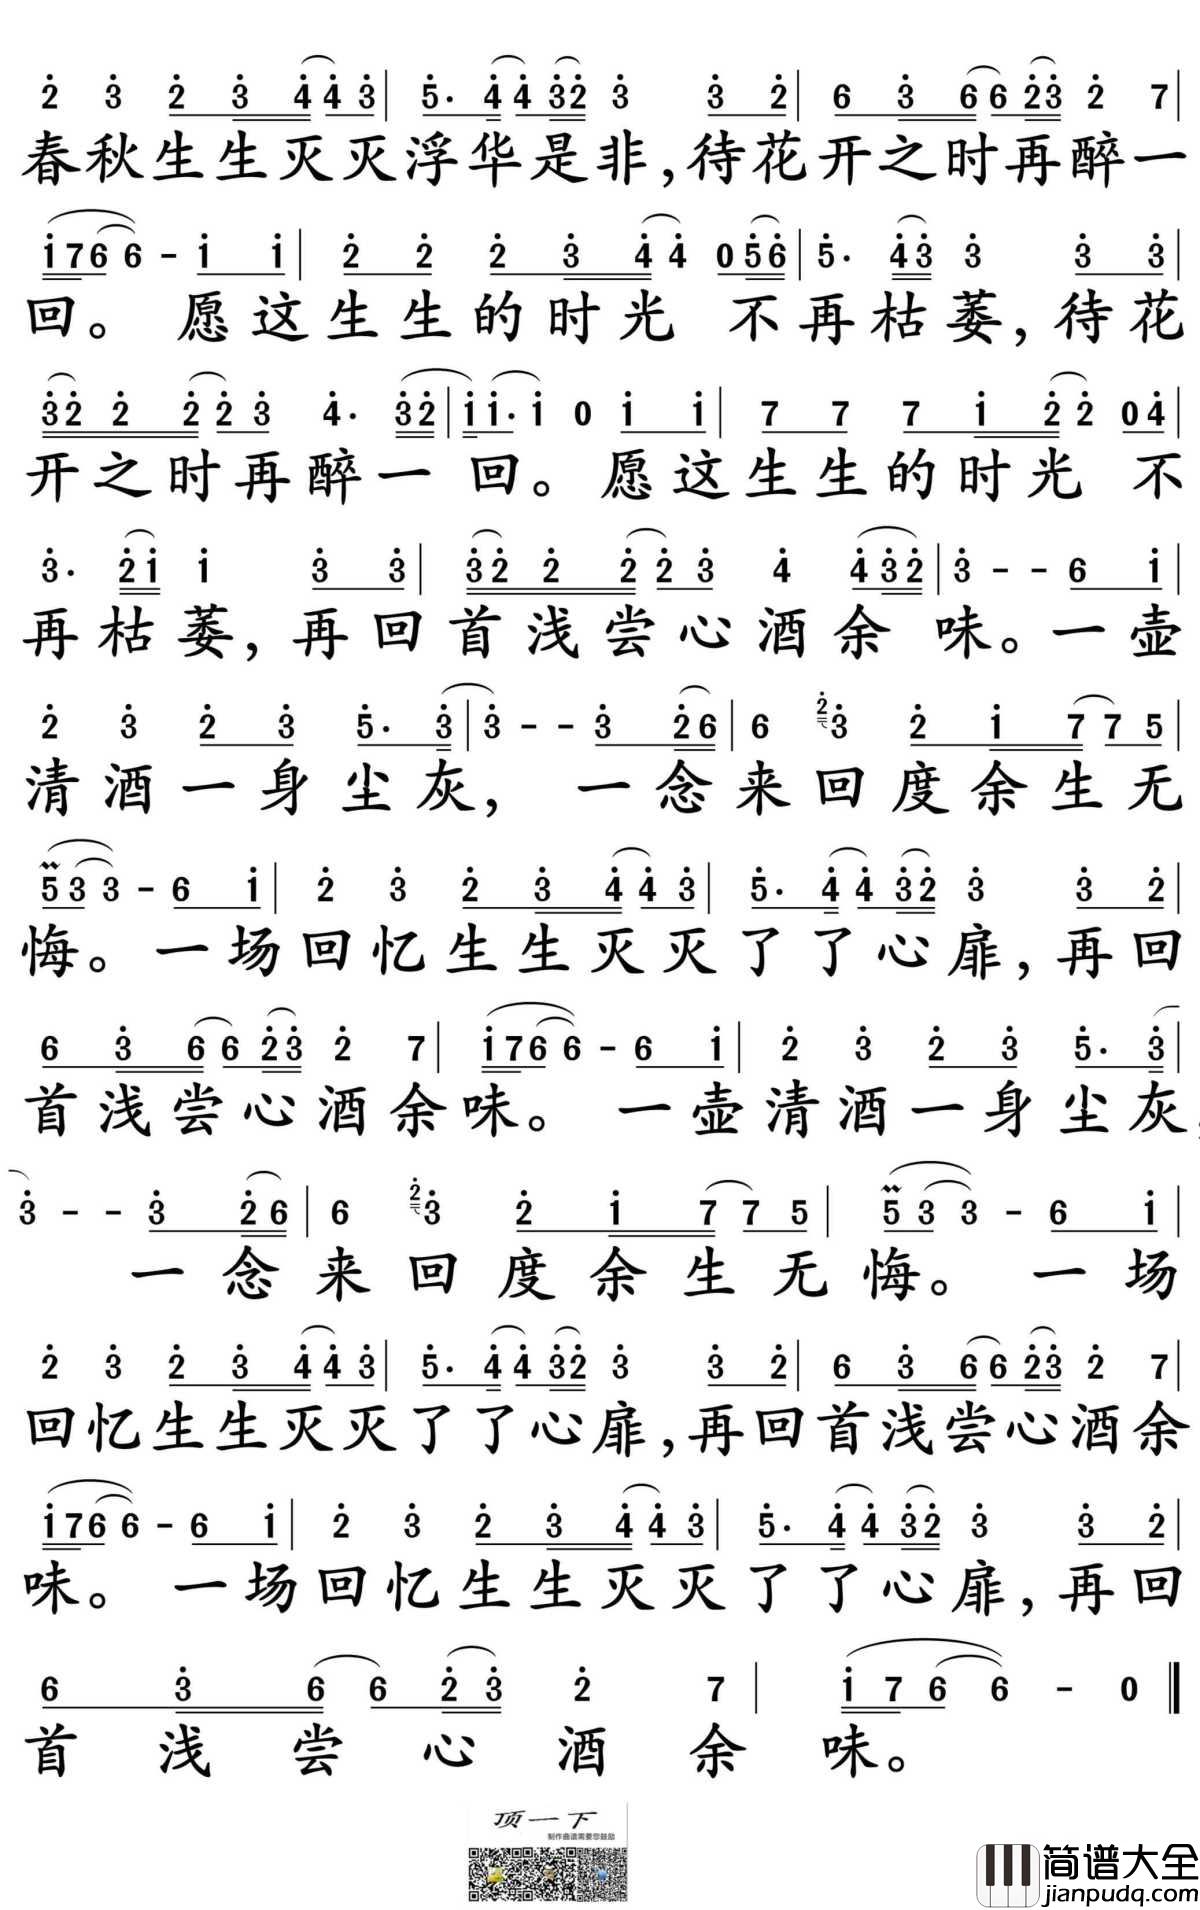 2̇ 3̇ 2̇ 3̇ 4̇ 4̇ 3̇ | 5̇· 4̇ 4̇ 3̇ 2̇ 3̇ 3̇ 2̇ | 6 3̇ 6 6 2̇ 3̇ 2̇ 7 |
春秋生生灭灭浮华是非,待花开之时再醉一
1̇ 7 6 6 - 1̇ 1̇ | 2̇ 2̇ 2̇ 3̇ 4̇ 4̇ 0 5̇ 6̇ | 5̇· 4̇ 3̇ 3̇ 3̇ 3̇ |
回。愿这生生的时光 不再枯萎,待花
3̇ 2̇ 2̇ 2̇ 2̇ 3̇ 4̇· 3̇ 2̇ | 1̇ 1̇· 1̇ 0 1̇ 1̇ | 7 7 7 1̇ 2̇ 2̇ 0 4̇ |
开之时再醉一 回。愿这生生的时光 不
3̇· 2̇ 1̇ 1̇ 3̇ 3̇ | 3̇ 2̇ 2̇ 2̇ 2̇ 3̇ 4̇ 4̇ 3̇ 2̇ | 3̇ - - 6 1̇ |
再枯萎,再回首浅尝心酒余 味。一壶
2̇ 3̇ 2̇ 3̇ 5̇· 3̇ | 3̇ - - 3̇ 2̇ 6 | 6 2̇ 3̇ 2̇ 1̇ 7 7 5 |
清酒一身尘灰, 一念来回度余生无
5 3 3 - 6 1̇ | 2̇ 3̇ 2̇ 3̇ 4̇ 4̇ 3̇ | 5̇· 4̇ 4̇ 3̇ 2̇ 3̇ 3̇ 2̇ |
悔。一场回忆生生灭灭了了心扉,再回
6 3̇ 6 6 2̇ 3̇ 2̇ 7 | 1̇ 7 6 6 - 6 1̇ | 2̇ 3̇ 2̇ 3̇ 5̇· 3̇ |
首浅尝心酒余味。一壶清酒一身尘灰,
3̇ - - 3̇ 2̇ 6 | 6 2̇ 3̇ 2̇ 1̇ 7 7 5 | 5 3 3 - 6 1̇ |
一念来回度余生无悔。一场
2̇ 3̇ 2̇ 3̇ 4̇ 4̇ 3̇ | 5̇· 4̇ 4̇ 3̇ 2̇ 3̇ 3̇ 2̇ | 6 3̇ 6 6 2̇ 3̇ 2̇ 7 |
回忆生生灭灭了了心扉,再回首浅尝心酒余
1̇ 7 6 6 - 6 1̇ | 2̇ 3̇ 2̇ 3̇ 4̇ 4̇ 3̇ | 5̇· 4̇ 4̇ 3̇ 2̇ 3̇ 3̇ 2̇ |
味。一场回忆生生灭灭了了心扉,再回
6 3̇ 6 6 2̇ 3̇ 2̇ 7 | 1̇ 7 6 6 - 0 ‖
首浅尝心酒余味。
顶一下
制作曲谱需要您鼓励
简谱大全
jianpudq.com